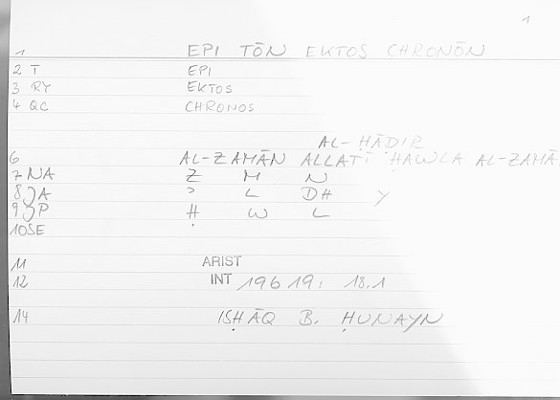 1
1 EPI TŌN EKTOS CHRONŌN
2 T EPI
3 RY EKTOS
4 QC CHRONOS
AL-ḤĀḌIR
6 AL-ZAMĀN ALLATĪ ḤAWLA AL-ZAMĀ
7 NA Z M N
8 A ʾ L DH Y
9 P Ḥ W L
10 SE
11 ARIST
12 INT 196 19: 18.1
14 ISḤĀQ B. ḤUNAYN